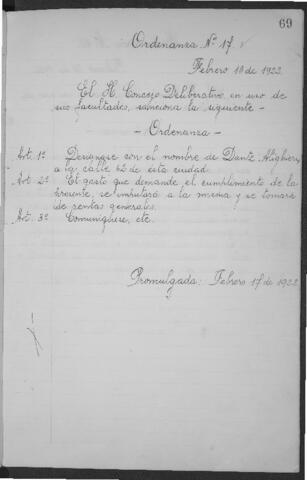 69
Ordenanza Nº 17.
Febrero 10 de 1922.
El H. Concejo Deliberativo, en uso de
sus facultades, sanciona la siguiente -
- Ordenanza -
Art. 1º Desígnase con el nombre de Dante Alighieri,
a la calle 62 de esta ciudad.
Art. 2º El gasto que demande el cumplimiento de la
presente, se imputará a la misma y se tomará
de rentas generales.
Art. 3º Comuníquese, etc.
Promulgada: Febrero 17 de 1922